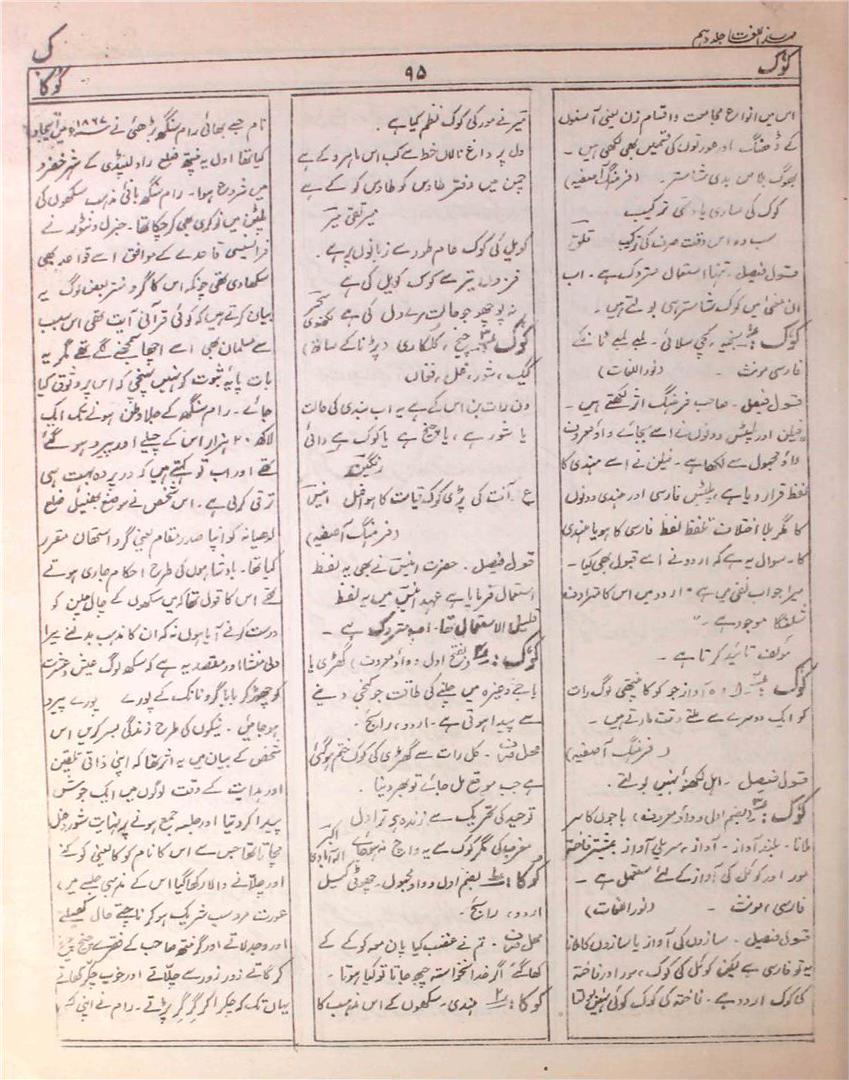 مہذب اللغات جلد دہم
ک
کوک
۹۵
کوکا
اس میں انواع مجامعت و اقسام زن یعنی آسنوں
کے ڈھنگ اور عورتوں کی قسمیں بھی لکھی ہیں ۔
بھوگ بلاس بدی شاستر ۔ (فرہنگ آصفیہ)
کوک کی ساری یاد تھی ترکیب
سب وہ اس وقت صرف کی ترکیب قلق
قول فیصل ۔ تنہا استعمال متروک ہے ۔ اب
ان معنی میں کوک شاستر ہی بولتے ہیں ۔
کوک : بخیہ ، کچی سلائی ۔ لمبے لمبے ٹانکے
فارسی مونث ۔ (نور اللغات)
قول فیصل ۔ صاحب فرہنگ اثر لکھتے ہیں ۔
فیلن اور پلیٹس دونوں نے اسے بجائے واؤ معروف
واؤ مجہول سے لکھا ہے ۔ فیلن نے اسے ہندی کا
لفظ قرار دیا ہے ، پلیٹس فارسی اور ہندی دونوں
کا مگر بلا اختلاف تلفظ لفظ فارسی کا ہو یا ہندی
کا ۔ سوال یہ ہے کہ اردو نے اسے قبول بھی کیا ۔
میرا جواب نفی میں ہے ۔ اردو میں اس کا مترادف
شلنگا موجود ہے ۔"
مؤلف تائید کرتا ہے ۔
کوک : وہ آواز جو کوکا پنتھی لوگ رات
کو ایک دوسرے سے ملتے وقت مارتے ہیں ۔
(فرہنگ آصفیہ)
قول فیصل ۔ اہل لکھنؤ نہیں بولتے ۔
کوک : (بضم اول و واؤ معروف) باجوں کا سر
ملانا ۔ بلند آواز ۔ آواز ، سریلی آواز بیشتر فاختہ
مور اور کوئل کی آواز کے لئے مستعمل ہے ۔
فارسی ، مونث ۔ (نور اللغات)
قول فیصل ۔ سازوں کی آواز یا سازوں کا ملانا
یہ تو فارسی ہے لیکن کوئل کی کوک ، مور اور فاختہ
کی کوک اردو ہے ۔ فاختہ کی کوک کوئی نہیں بولتا
قیر نے مور کی کوک نظم کیا ہے ۔
دل پر داغ نالاں خط سے کب اس ماہرو کے ہے
چمن میں دفتر طاؤس کو طاؤس کو کے ہے
میر تقی میر
کوئل کی کوک عام طور سے زبانوں پر ہے ۔
فزوں تیر سے کوک کوئل کی ہے
نہ پوچھو جو حالت مرے دل کی ہے لکھنوی
کوک : چیخ ، کلکاری (پڑنا کے ساتھ)
کیک ، شور ، غل ، فغاں
دن رات بن اس کے ہے یہ اب بندی کی حالت
یا شور ہے ، یا چیخ ہے یا کوک ہے دائی
رنگین
ع ۔ آفت کی پڑی کوک قیامت کا ہوا غل انیس
(فرہنگ آصفیہ)
قول فیصل ۔ حضرت انیس نے بھی یہ لفظ
استعمال فرمایا ہے عہد انیس میں یہ لفظ
قلیل الاستعمال تھا ۔ اب متروک ہے ۔
کوک : (بفتح اول و واؤ معروف) گھڑی یا
باجے وغیرہ میں چلنے کی طاقت جو کنجی دینے
سے پیدا ہوتی ہے ۔ اردو ، رائج ۔
محل صرف ۔ کل رات سے گھڑی کی کوک ختم ہو گئی
ہے جب موقع مل جائے تو بھر دینا ۔
توحید کی تحریک سے زندہ ہو تو اول
مغرب کی مگر کوک سے یہ واچ نہ ہو جائے اکبر الہ آبادی
کوکا : بضم اول و واؤ مجہول ۔ چھوٹی کیل
اردو ، رائج ۔
محل صرف ۔ تم نے غضب کیا پان مع کوکے کے
کھا گئے اگر خدا نخواستہ چبھ جاتا تو کیا ہوتا ۔
کوکا : ہندی ۔ سکھوں کے اس مذہب کا
نام جسے بھائی رام سنگھ بڑھئی نے ۱۸۶۷ء میں ایجاد
کیا تھا ۔ اول یہ پنتھ ضلع راولپنڈی کے شہر حضرو
میں شروع ہوا ۔ رام سنگھ بانی مذہب سکھوں کی
پلٹن میں نوکری بھی کر چکا تھا ۔ جنرل ونٹورہ نے
فرانسیسی قاعدے کے موافق اسے قواعد بھی
سکھا دی تھی چونکہ اس کا گرو منتر بعض لوگ یہ
بیان کرتے ہیں کہ کوئی قرآنی آیت تھی اس سبب
سے مسلمان بھی اسے اچھا سمجھنے لگے تھے مگر یہ
بات پایہ ثبوت کو نہیں پہنچی کہ اس پر وثوق کیا
جائے ۔ رام سنگھ کے جلا وطن ہونے تک ایک
لاکھ ۲۰ ہزار اس کے چیلے اور پیرو ہو گئے
تھے اور اب تو کہتے ہیں کہ درپردہ بہت ہی
ترقی کر لی ہے ۔ اس شخص نے موضع بھینی ضلع
لدھیانہ کو اپنا صدر مقام یعنی گرو استھان مقرر
کیا تھا ۔ بادشاہوں کی طرح احکام جاری ہوتے
تھے اس کا قول تھا کہ میں سکھوں کے چال چلن کو
درست کرنے آیا ہوں نہ کہ ان کا مذہب بدلنے میرا
دلی منشا اور مقصد یہ ہے کہ سکھ لوگ عیش و عشرت
کو چھوڑ کر بابا گرو نانک کے پورے پورے پیرو
ہو جائیں ۔ نیکوں کی طرح زندگی بسر کریں اس
شخص کے بیان میں یہ اثر تھا کہ اپنی ذاتی تلقین
اور ہدایت کے وقت لوگوں میں ایک جوش
پیدا کر دیتا اور جلسہ جمع ہونے پر نہایت شور و غل
مچاتا تھا جس سے اس کا نام کوکا یعنی کوکنے
اور چلانے والا رکھا گیا اس کے مذہبی جلسے میں ،
عورت مرد سب شریک ہو کر ناچتے حال کھیلتے
اور وجد لاتے اور گرنتھ صاحب کے فقرے چیخ چیخ
کر گاتے زور زور سے چلاتے اور خوب چکر کھاتے
یہاں تک کہ چکرا کر گر گر پڑتے ۔ رام نے اپنی